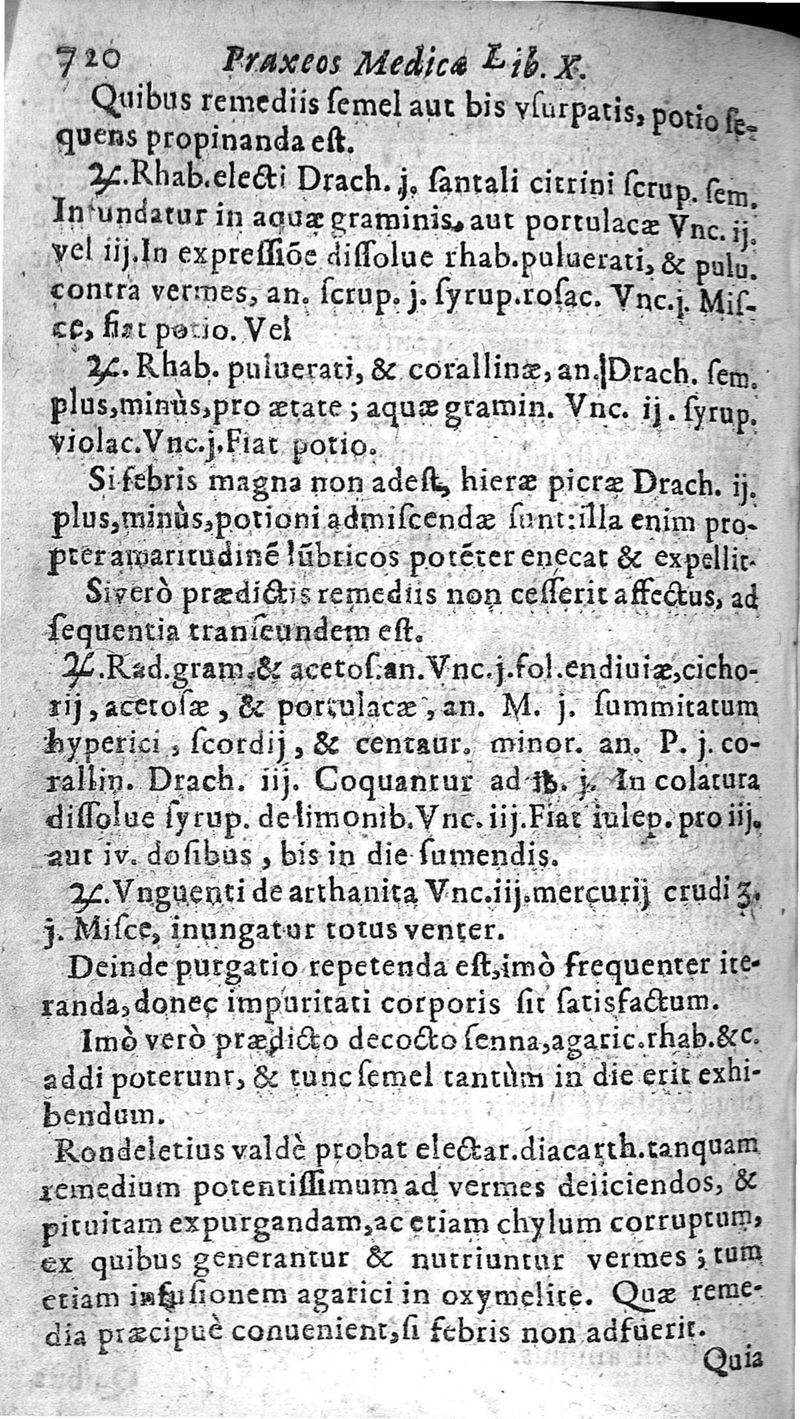 720 Praxeos Medicæ Lib. X.
Quibus remediis ſemel aut bis vſurpatis, potio ſe-
quens propinanda eſt.
℞. Rhab. electi Drach. j. ſantali citrini ſcrup. ſem.
Infundatur in aquæ graminis, aut portulacæ Vnc. ij.
vel iij. In expreſſiõe diſſolue rhab. puluerati, & pulu.
contra vermes, an. ſcrup. j. ſyrup. roſac. Vnc. j. Miſ-
ce, fiat potio. Vel
℞. Rhab. puluerati, & corallinæ, an. Drach. ſem.
plus, minùs, pro ætate; aquæ gramin. Vnc. ij. ſyrup.
violac. Vnc. j. Fiat potio.
Si febris magna non adeſt, hieræ picræ Drach. ij.
plus, minùs, potioni admiſcendæ ſunt: illa enim pro-
pter amaritudinẽ lũbricos potẽter enecat & expellit.
Si verò prædictis remediis non ceſſerit affectus, ad
ſequentia tranſeundem eſt.
℞. Rad. gram. & acetoſ. an. Vnc. j. fol. endiuiæ, cicho-
rij, acetoſæ, & portulacæ, an. M. j. ſummitatum
hyperici, ſcordij, & centaur. minor. an. P. j. co-
rallin. Drach. iij. Coquantur ad ℔. j. In colatura
diſſolue ſyrup. de limonib. Vnc. iij. Fiat iulep. pro iij.
aut iv. doſibus, bis in die ſumendis.
℞. Vnguenti de arthanita Vnc. iij. mercurij crudi ʒ.
j. Miſce, inungatur totus venter.
Deinde purgatio repetenda eſt, imò frequenter ite-
randa, donec impuritati corporis ſit ſatisfactum.
Imò verò prædicto decocto ſenna, agaric. rhab. &c.
addi poterunt, & tunc ſemel tantùm in die erit exhi-
bendum.
Rondeletius valdè probat electar. diacarth. tanquam
remedium potentiſſimum ad vermes deiiciendos, &
pituitam expurgandam, ac etiam chylum corruptum,
ex quibus generantur & nutriuntur vermes; tum
etiam infuſionem agarici in oxymelite. Quæ reme-
dia præcipuè conuenient, ſi febris non adfuerit.
Quia